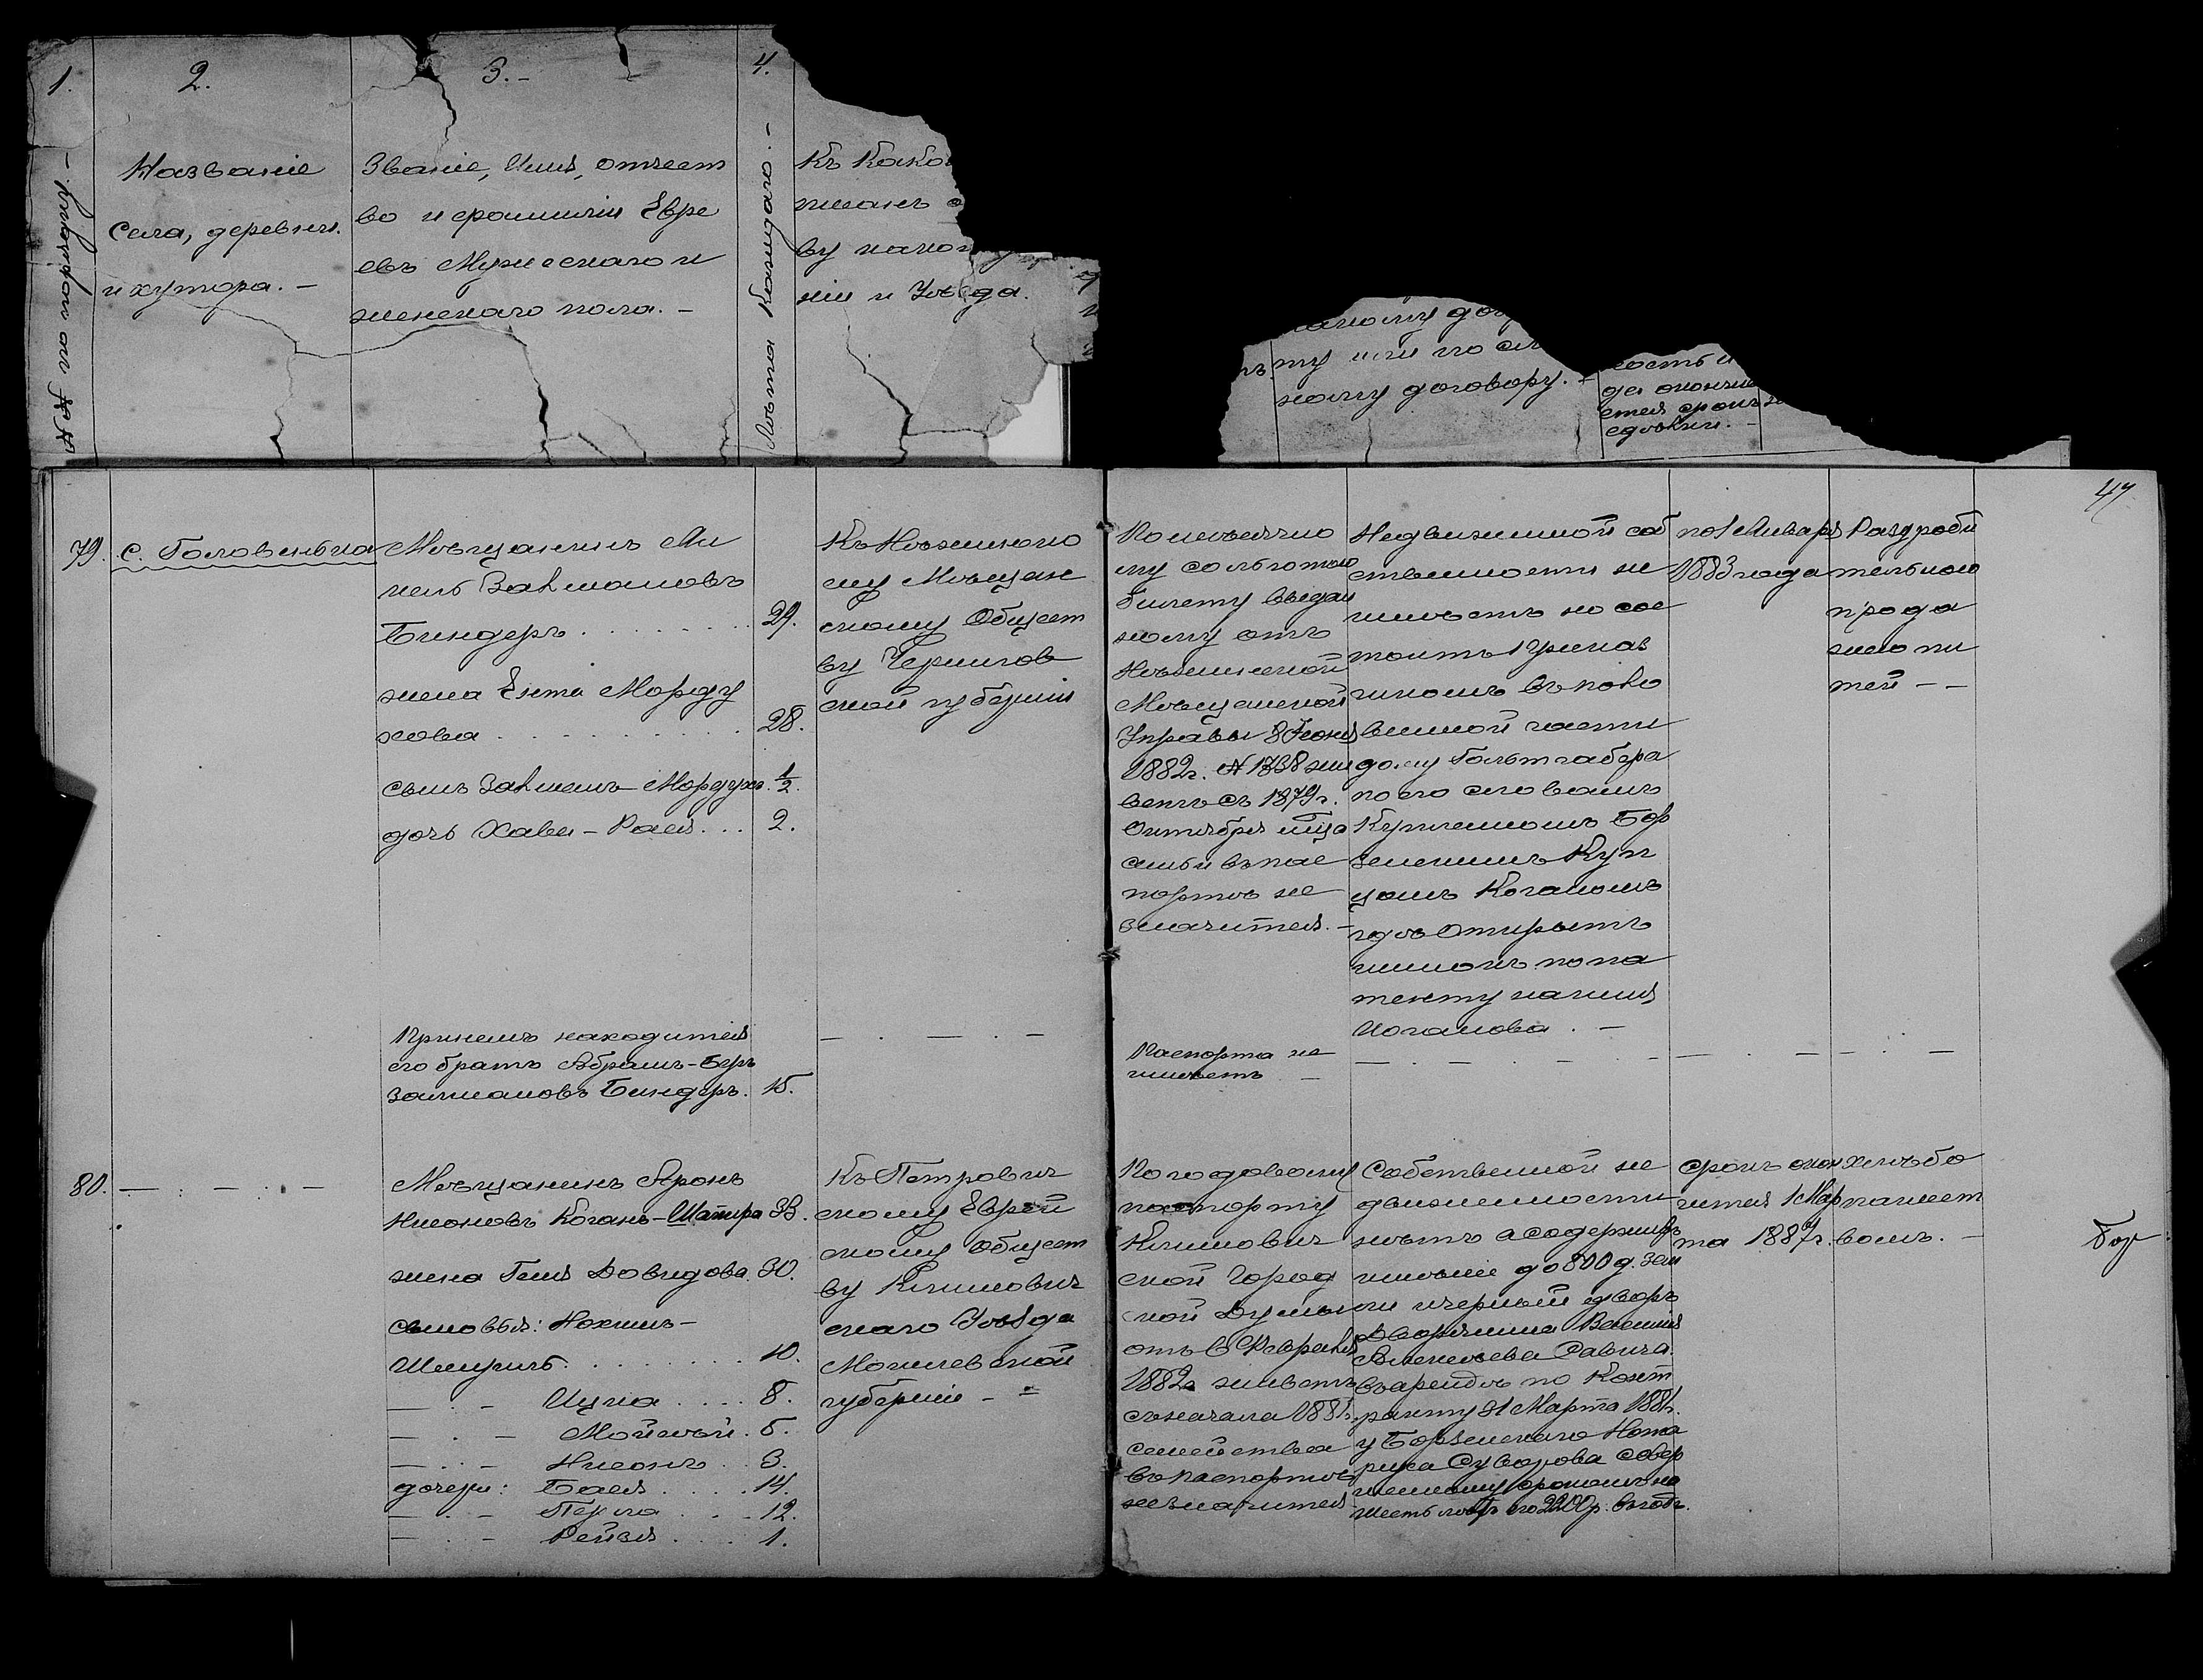 1.
2.
3.-
4.
№№ по порядку. -
Названіе
села, деревни
и хутора. -
Званіе, Имя, отчест
во и фамилія Евре
евъ Мужескаго и
женскаго пола. -
Лѣта Каждаго. -
Къ како
писанъ
ву
ніи и Уѣзда.
ту или по
ному договору. -
ость
да окончи
ется срокъ
сдѣлки. -
47
79.
с. Головеньки
Мѣщанинъ
Залмановъ
Биндеръ . . . . . . . 29.
жена Ента Морду
хова . . . . . . . . . . 28.
сынъ Залменъ-Мордухъ. ½.
дочь Хава-Рася . . . 2.
Къ Нѣжинско
му Мѣщан
скому Общест
ву Чернигов
ской губерніи
По мѣсячно
му со льготою
билету выдан
ному отъ
Нѣжинской
Мѣщанской
Управы 8 Іюня
1882г. № 1738 жи
ветъ съ 1879г.
Октября мца
семьи въ пас
портѣ не
значится. -
Недвижимой соб
ственности не
имѣетъ но сос
тоитъ прикащ
икомъ въ поло
винной части
дому Гольтгабера
по его словамъ
Купленномъ Бор
зенскимъ Куп
цомъ Коганомъ
гдѣ Открытъ
шинокъ по па
тенту на имя
Коганова. -
по 1 Января
1883 года
Раздроби
тельною
прода
жею пи
тей - -
При немъ находится
его братъ Абрамъ-Беръ
Залмановъ Биндеръ. 15.
Паспорта не
имѣетъ -
80.
Мѣщанинъ Аронъ
Нисоновъ Коганъ-Шапира 33.
жена Геня Довидова. 30.
сыновья: Нохимъ-
Шмуилъ . . . . . . . 10.
— . - Ицка . . . . 8.
— . - Мойсѣй . 5.
— . - Нисонъ . . 3.
дочери: Бася . . . . 14.
— . - Перла . . . 12.
— . - Рейзя . . . . 1.
Къ Петрович
скому Еврей
скому Общест
ву Климович
скаго Уѣзда
Могилевской
губерніи - -
По годовому
паспорту
Климович
ской Город
ской Думы
отъ 6 Февраля
1882г. живетъ
съ начала 1881г.
семейства
въ паспортѣ
не значится.
Собственной не
движимости
нѣтъ а содержитъ
имѣніе до 800 д. зем
ли и черный дворъ
Дворянина Василія
Алексѣева Савича
въ арендѣ по Конт
ракту 31 Марта 1881г.
у Борзенскаго Нота
ріуса Суворова совер
шенному срокомъ на
шесть лѣтъ по 2200 р. въ годъ.
срокъ окон
чится 1 Мар
та 1887г.
хлѣбо
пашест
вомъ. -